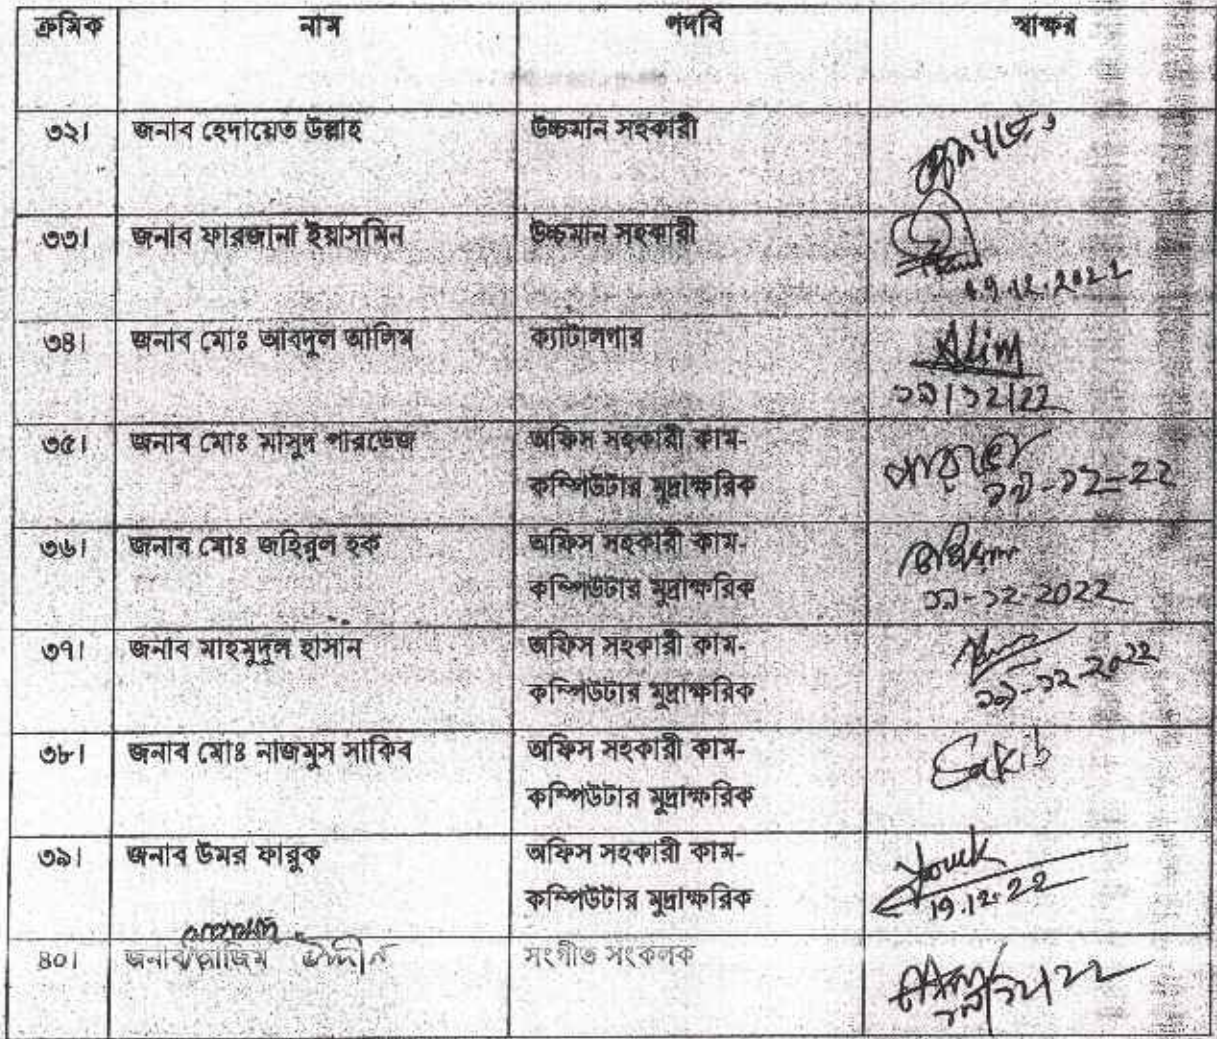 ক্রমিক নাম পদবি স্বাক্ষর
৩২। জনাব হেদায়েত উল্লাহ উচ্চমান সহকারী
৩৩। জনাব ফারজানা ইয়াসমিন উচ্চমান সহকারী
১৯.১২.২০২২
৩৪। জনাব মোঃ আবদুল আলিম ক্যাটালগার Alim
১৯/১২/22
৩৫। জনাব মোঃ মাসুদ পারভেজ অফিস সহকারী কাম-
কম্পিউটার মুদ্রাক্ষরিক ১৯-১২-২২
৩৬। জনাব মোঃ জহিরুল হক অফিস সহকারী কাম-
কম্পিউটার মুদ্রাক্ষরিক ১৯-১২-2022
৩৭। জনাব মাহমুদুল হাসান অফিস সহকারী কাম-
কম্পিউটার মুদ্রাক্ষরিক ১৯-১২-2022
৩৮। জনাব মোঃ নাজমুস সাকিব অফিস সহকারী কাম- Sakib
কম্পিউটার মুদ্রাক্ষরিক
৩৯। জনাব উমর ফারুক অফিস সহকারী কাম-
কম্পিউটার মুদ্রাক্ষরিক 19.12.22
৪০। জনাব উদ্দীন সংগীত সংকলক